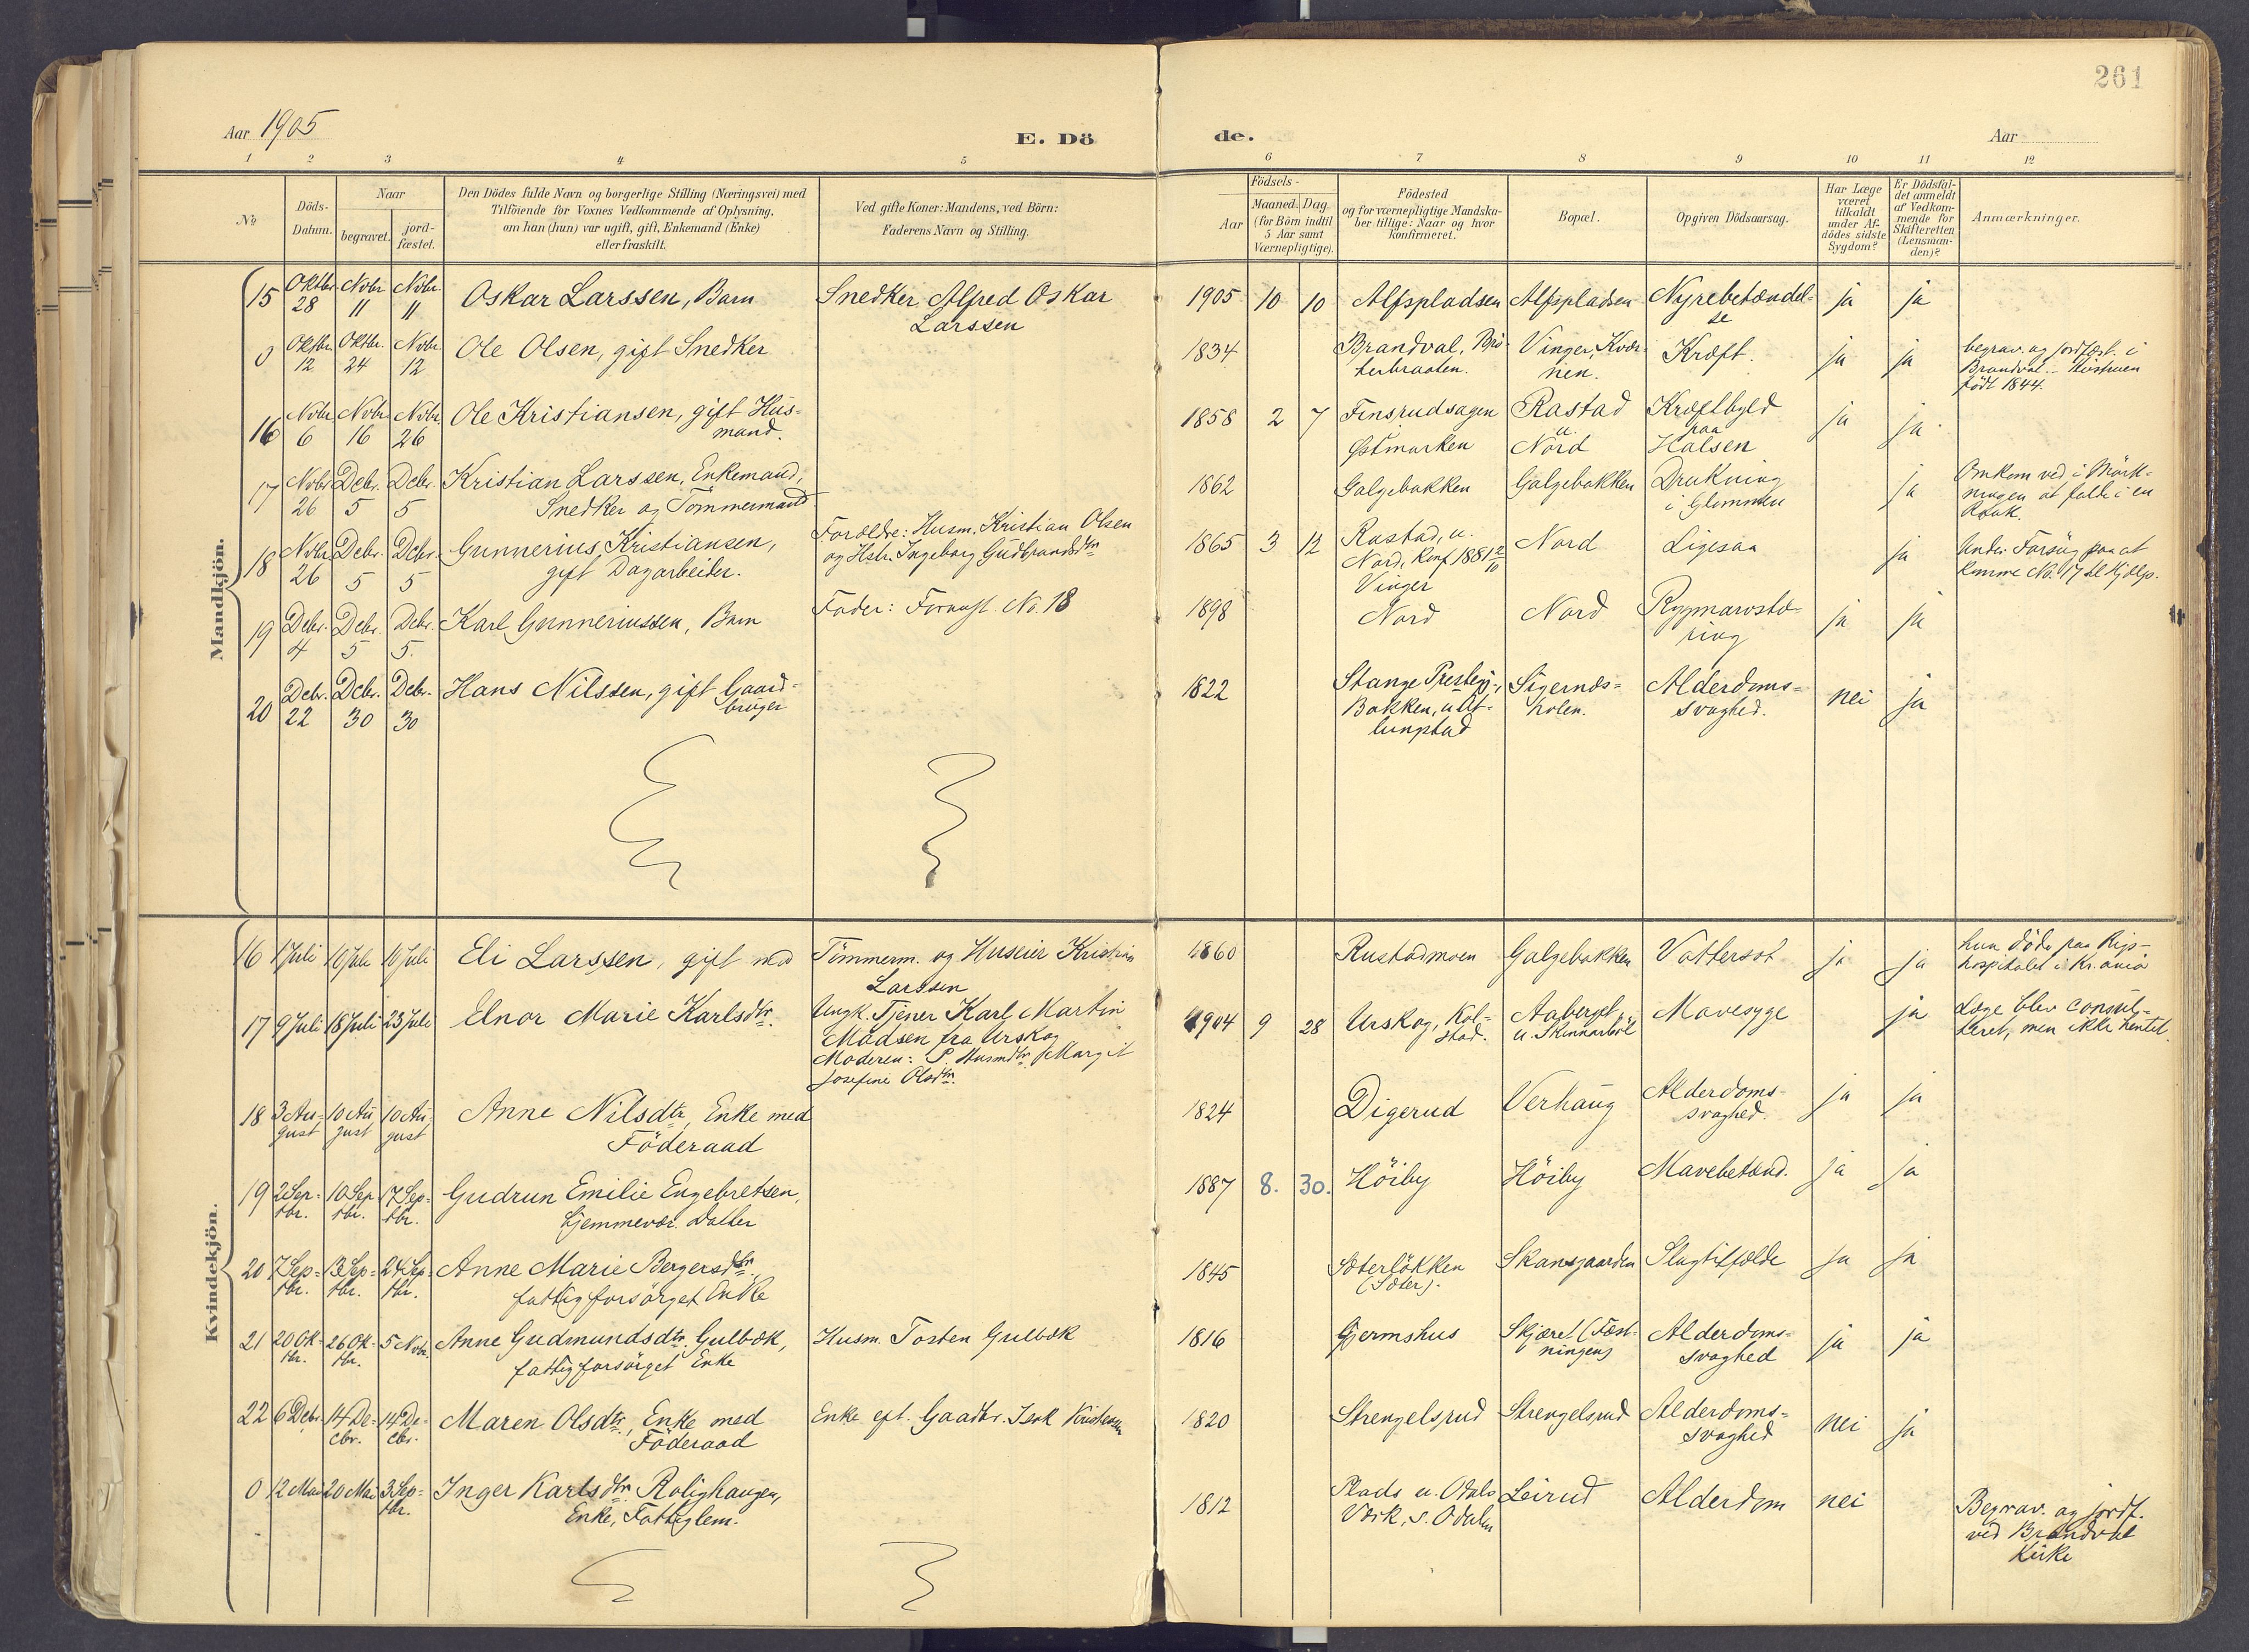 261
Aar 1905
E. Dö
de.
Aar
1 2 3 4 5
6 7 8 9 10 11 12
No
Döds-
Datum.
Naar
begravet.
jord-
fæstet.
Den Dödes fulde Navn og borgerlige Stilling (Næringsvei) med
Tilföiende for Voxnes Vedkommende af Oplysning,
om han (hun) var ugift, gift, Enkemand (Enke)
eller fraskilt.
Ved gifte Koner: Mandens, ved Börn:
Faderens Navn og Stilling.
Födsels-
Aar
Maaned. Dag.
(for Börn indtil
5 Aar samt
Værnepligtige).
Födested
og for værnepligtige Mandska-
ber tillige: Naar og hvor
konfirmeret.
Bopæl.
Opgiven Dödsaarsag.
Har Læge
været
tilkaldt
under Af-
dödes sidste
Sygdom?
Er Dödsfal-
det anmeldt
af Vedkom-
mende for
Skifteretten
(Lensman-
den)?
Anmærkninger.
Mandkjön.
15 Oktbr. 28 Novbr. 11 Novbr. 11 Oskar Larssen, Barn
Snedker Alfred Oskar
Larssen
1905 10 10 Alfspladsen Alfspladsen Nyrebetændel-
se
ja ja
0 Oktbr. 12 Oktbr. 24 Novbr. 12 Ole Olsen, gift Snedker
1834 Brandval,
Vinger, Kvær-
nen.
Kræft. ja ja
begrav. og jordfæst. i
Brandval.
født 1844.
16 Novbr. 6 Novbr. 16 Novbr. 26 Ole Kristiansen, gift Hus-
mand.
1858 2 7 Finsrudsagen
Østmarken
Rastad
u.
Nord
Kræftbyld
paa
Halsen
ja ja
17 Novbr. 26 Debr. 5 Debr. 5 Kristian Larssen, Enkemand,
Snedker og Tömmermand
1862 Galgebakken Galgebakken Drukning
i Glommen
ja
Omkom ved i Mörk-
ningen at falde i en
Raak.
18 Novbr. 26 Debr. 5 Debr. 5 Gunnerius Kristiansen,
gift Dagarbeider.
Forældre: Husm. Kristian Olsen
og Hstr. Ingeborg Gudbrandsdtr
1865 3 12 Rastad, u.
Nord, Konf. 1881 2/10
Vinger
Nord Ligesaa ja
Under Forsög paa at
komme No. 17 til Hjælp.
19 Debr. 4 Debr. 5 Debr. 5. Karl Gunneriussen, Barn
Fader: No. 18
1898 Nord Nord Rygmarvstæ-
ring
ja ja
20 Debr. 22 Debr. 30 Debr. 30 Hans Nilssen, gift Gaard-
bruger
1822 Stange Prestegj.,
Bakken, u. At-
lungstad
Sigernæs-
holen.
Alderdoms-
svaghed.
nei ja
Kvindekjön.
16 1 Juli 10 Juli 10 Juli Eli Larssen, gift med
Tömmerm. og Huseier Kristian
Larssen
1860 Rustadmoen Galgebakken Vattersot ja ja
hun döde paa Rigs-
hospitalet i Kr.ania
17 9 Juli 18 Juli 23 Juli Elnor Marie Karlsdtr.
Ungk. Tjener Karl Martin
Madsen fra Urskog
Moderen: P. Husmdtr. Margit
Josefine Olsdtr.
1904 9 28 Urskog, Kol-
stad.
Aaberget,
u. Skinnarböl
Mavesyge ja
Læge blev consul-
teret, men ikke hentet.
18 3 Au-
gust 10 Au-
gust 10 Au-
gust Anne Nilsdtr, Enke med
Föderaad
1824 Digerud Verhaug Alderdoms-
svaghed.
ja ja
19 2 Sep-
tbr. 10 Sep-
tbr. 17 Sep-
tbr. Gudrun Emilie Engebretsen,
hjemmevær. datter
1887 8. 30. Höiby Höiby Mavebetænd. ja ja
20 7 Sep-
tbr. 13 Sep-
tbr. 24 Sep-
tbr. Anne Marie Bergersdtr.
fattigforsörget Enke
1845 Sæterlökken
(Sæter).
Skansgaarden Slagtilfælde ja ja
21 20 Ok-
tbr. 26 Ok-
tbr. 5 Novbr. Anne Gudmundsdtr. Gulbæk,
fattigforsörget Enke
Husm. Tosten Gulbæk
1816 Gjermshus Skjæret (Fæst-
ningen)
Alderdoms-
svaghed
ja ja
22 6 Debr. 14 De-
cbr. 14 De-
cbr. Maren Olsdtr, Enke med
Föderaad
Enke eft. Gaardbr. Isak Kristensen
1820 Strengelsrud Strengelsrud Alderdoms-
svaghed
nei ja
0 12 Mai 20 Mai 3 Sep-
tbr. Inger Karlsdtr Rolighaugen,
Enke, Fattiglem.
1812 Plads u. Odals
Værk, s. Odalen
Leirud Alderdom nei
Begrav. og jordf.
ved Brandval
Kirke